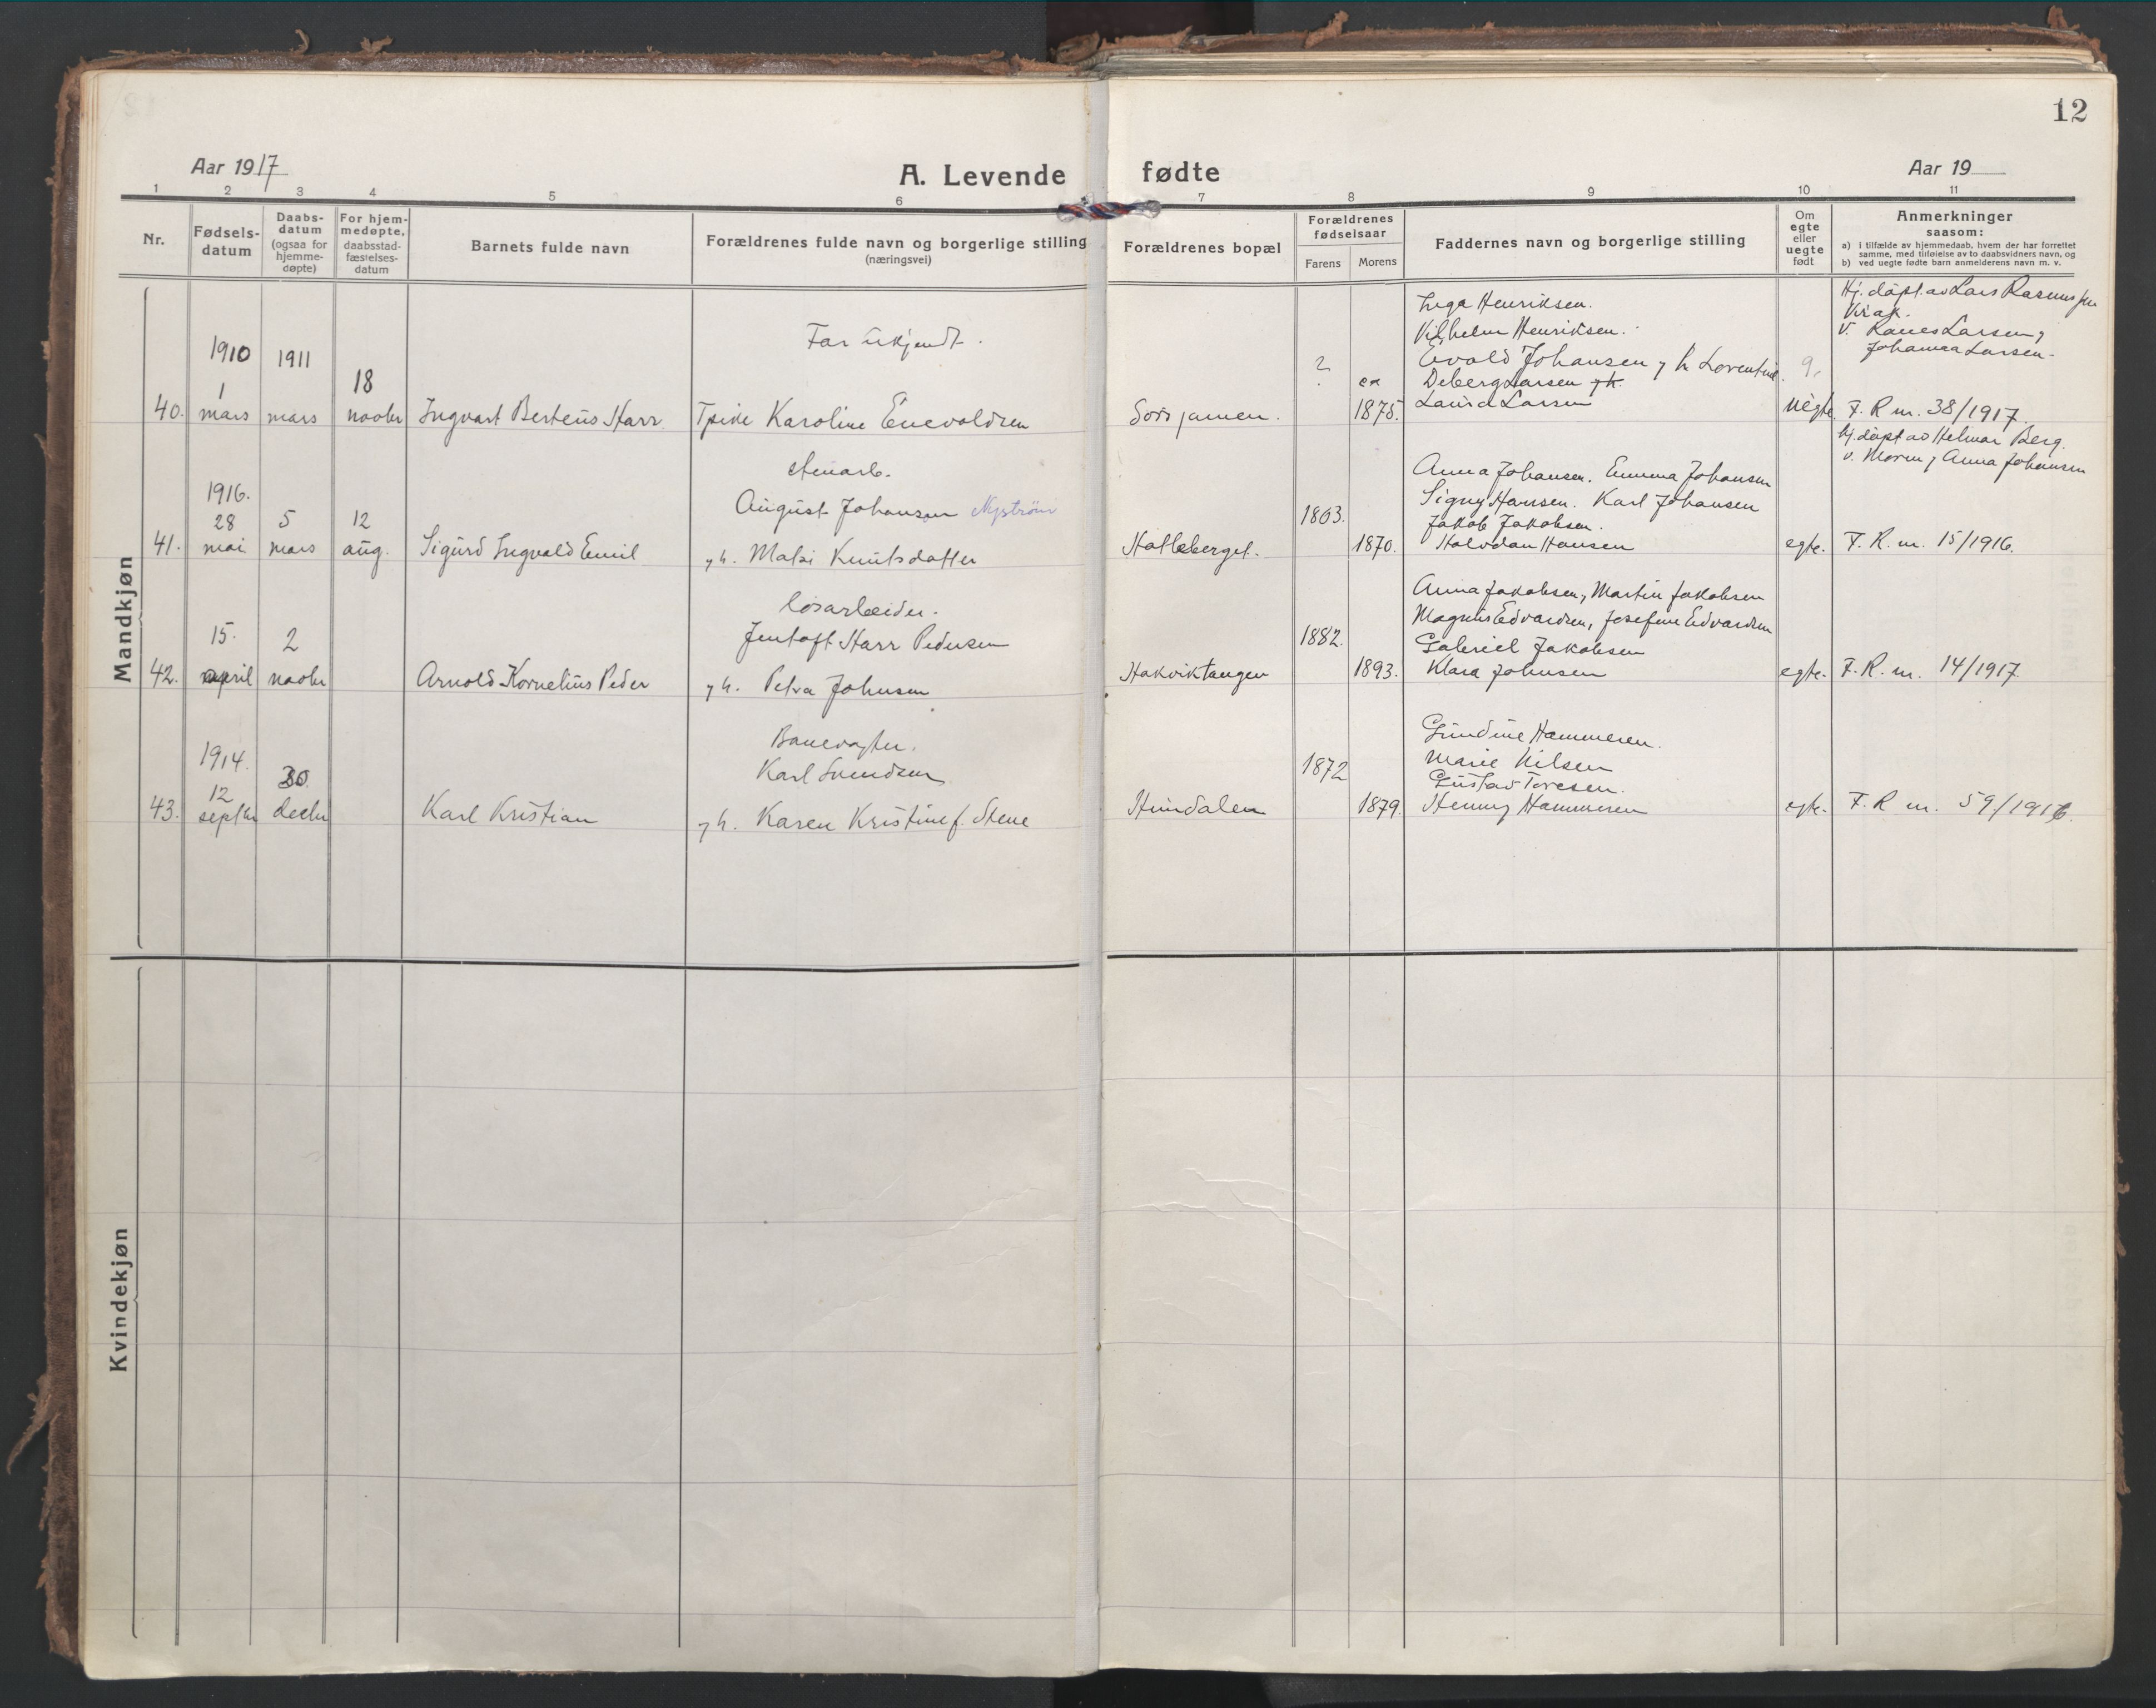 12
Aar 1917
A. Levende fødte
Aar 19
1 2 3 4 5 6 7 8 9 10 11
Nr.
Fødsels-
datum
Daabs-
datum
(ogsaa for
hjemme-
døpte)
For hjem-
medøpte,
daabsstad-
fæstelses-
datum
Barnets fulde navn
Forældrenes fulde navn og borgerlige stilling
(næringsvei)
Forældrenes bopæl
Forældrenes
fødselsaar
Farens
Morens
Faddernes navn og borgerlige stilling
Om
egte
eller
uegte
født
Anmerkninger
saasom:
a) i tilfælde av hjemmedaab, hvem der har forrettet
samme, med tilføielse av to daabsvidners navn, og
b) ved uegte fødte barn anmelderens navn m. v.
Mandkjøn
40.
1910
1
mars
1911
mars
18
novbr
Ingvart Berteus Harr
Far ukjendt.
Tpike Karoline Enevoldsen
?
1875.
Inga Henriksen.
Vilhelm Henriksen.
Evald Johansen
Deberg Larsen
Laura Larsen
uegte
Hj. døpt av Lars Rasmussen
V. Larsen,
Johanna Larsen.
F. R m. 38/1917.
41.
1916.
28
mai
5
mars
12
aug.
Sigurd Ingvald Emil
stenarb.
August Johansen Nystrøm
, h. Matsi Knutsdatter
Hatleberget.
1863.
1870.
Anna Johansen. Emma Johansen
Signy Hansen. Karl Johansen
Jakob Jakobsen.
Halvdan Hansen
egte.
hj. døpt av Helmar Berg.
v. Moren, Anna Johansen
F. R. m. 15/1916.
42.
15.
april
2
novbr
Arnold Kornelius Peder
løsarbeider.
Jentoft Harr Pedersen
, h. Petra Johnsen
Hakviktangen
1882.
1893.
Anna Jakobsen, Martin Jakobsen
Magnus Edvardsen, Josefine Edvardsen
Gabriel Jakobsen
Klara Johnsen
egte.
F. R. m. 14/1917
43.
1914.
12
septbr
30.
decbr
Karl Kristian
Banevogter.
Karl Svendsen
, h. Karen Kristine f. Stene
Hundalen
1872
1879.
Gundine Hammeren.
Marie Nilsen
Gustav Toresen.
Henny Hammeren
egte.
F. R m. 59/1916.
Kvindekjøn